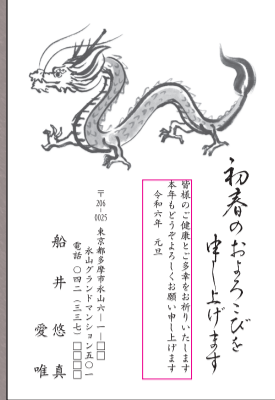 初春のおよろこびを
申し上げます
皆様のご健康とご多幸をお祈りいたします
本年もどうぞよろしくお願い申し上げます
令和六年 元旦
〒206-0025
東京都多摩市永山六-一-□□
永山グランドマンション五〇一
電話 〇四二(三三七)□□□□
船井 悠真
愛唯